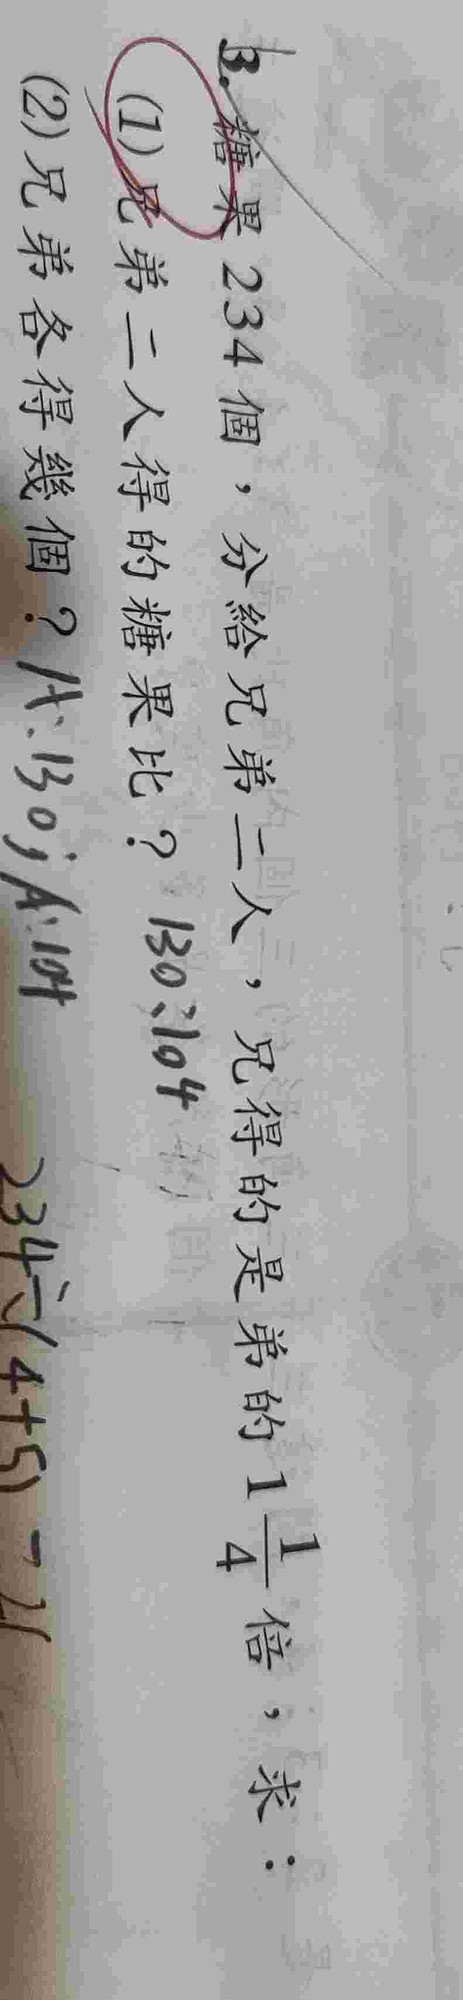 3. 糖果234個，分給兄弟二人，兄得的是弟的1 1/4倍，求：
(1)兄弟二人得的糖果比？ 130:104
(2)兄弟各得幾個？A:130; A:104
234÷(4+5)=2